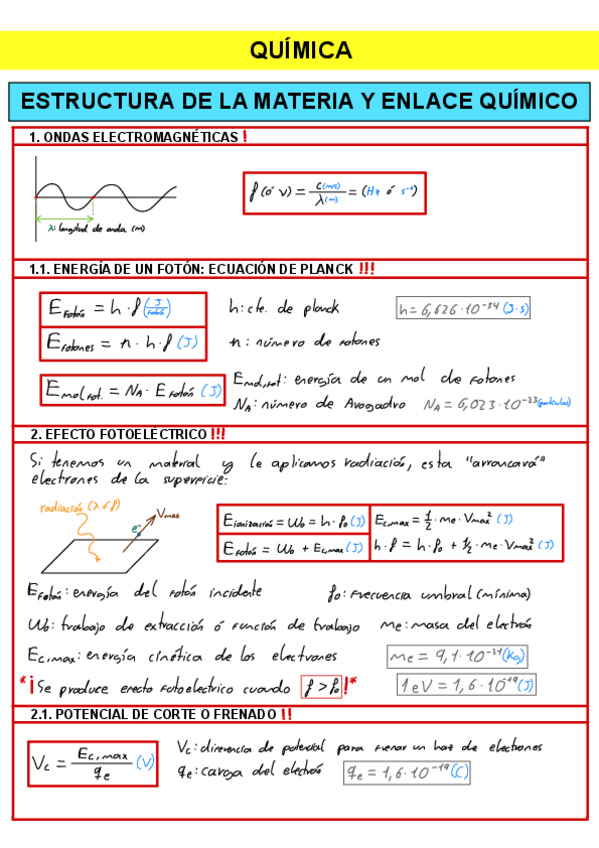 QUÍMICA
ESTRUCTURA DE LA MATERIA Y ENLACE QUÍMICO
1. ONDAS ELECTROMAGNÉTICAS !
f (ó ν) = c(m/s) / λ(m) = (Hz ó s⁻¹)
λ: longitud de onda (m)
1.1. ENERGÍA DE UN FOTÓN: ECUACIÓN DE PLANCK !!!
E Fotón = h · f (J/fotón)
h: cte. de planck
h = 6,626 · 10⁻³⁴ (J·s)
E fotones = n · h · f (J)
n: número de fotones
E mol fot. = NA · E Fotón (J)
E mol,fot: energía de un mol de fotones
NA: número de Avogadro
NA = 6,023 · 10⁻²³ (partículas)
2. EFECTO FOTOELÉCTRICO !!!
Si tenemos un material y le aplicamos radiación, esta "arrancará"
electrones de la superficie:
radiación (λ ó f)
Vmax
e⁻
E ionización = W₀ = h · f₀ (J)
Ec,max = 1/2 · me · Vmax² (J)
E Fotón = W₀ + Ec,max (J)
h · f = h · f₀ + 1/2 · me · Vmax² (J)
E Fotón: energía del fotón incidente
f₀: frecuencia umbral (mínima)
W₀: trabajo de extracción ó función de trabajo
me: masa del electrón
Ec,max: energía cinética de los electrones
me = 9,1 · 10⁻³¹ (Kg)
*¡Se produce efecto fotoelectrico cuando f > f₀!*
1eV = 1,6 · 10⁻¹⁹ (J)
2.1. POTENCIAL DE CORTE O FRENADO !!
Vc = Ec,max / qe (V)
Vc: diferencia de potencial para frenar un haz de electrones
qe: carga del electrón
qe = 1,6 · 10⁻¹⁹ (C)